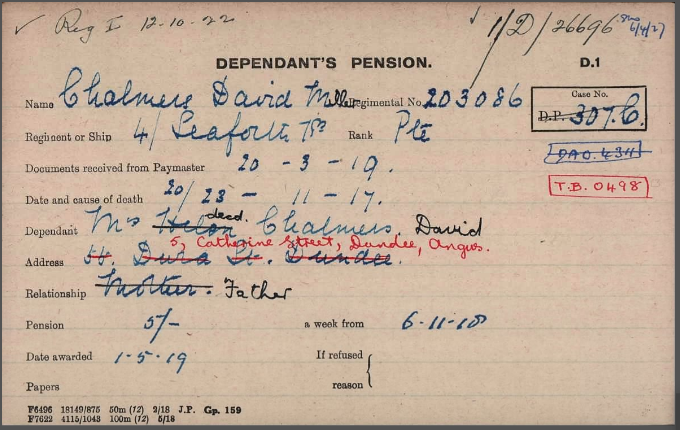 ✓ Reg I 12-10-22 1/D/26696 6/4/27
DEPENDANT'S PENSION. D.1
Name Chalmers David Miller Regimental No. 203086
Case No. D.P. 307.C.
Regiment or Ship 4/ Seaforth Rank Pte
D.A.O. 4311
Documents received from Paymaster 20 - 3 - 19.
T.B. 0498
Date and cause of death 20/23 - 11 - 17.
decd.
Dependant Mrs Helen Chalmers, David
5, Catherine Street, Dundee, Angus.
Address Dura St. Dundee.
Relationship Mother. Father
Pension 5/- a week from 6-11-18
Date awarded 1-5-19 If refused
Papers reason
F6496 18149/875 50m (12) 2/18 J.P. Gp. 159
F7622 4115/1043 100m (12) 5/18